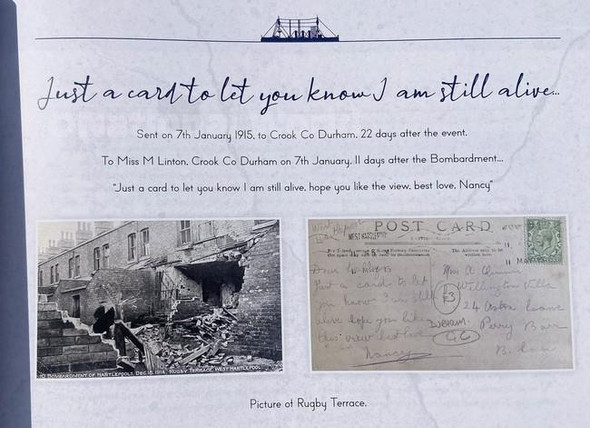 Just a card to let you know I am still alive...
Sent on 7th January 1915, to Crook Co Durham, 22 days after the event.
To Miss M Linton, Crook Co Durham on 7th January, 11 days after the Bombardment...
"Just a card to let you know I am still alive, hope you like the view, best love, Nancy"
BOMBARDMENT OF HARTLEPOOLS, DEC. 16. 1914. RUGBY TERRACE, WEST HARTLEPOOL
POST CARD
WEST HARTLEPOOL
Dear
Just a card to let
you know I am still
alive hope you like
this view best love
Nancy
24
Perry Barr
£3
Picture of Rugby Terrace.